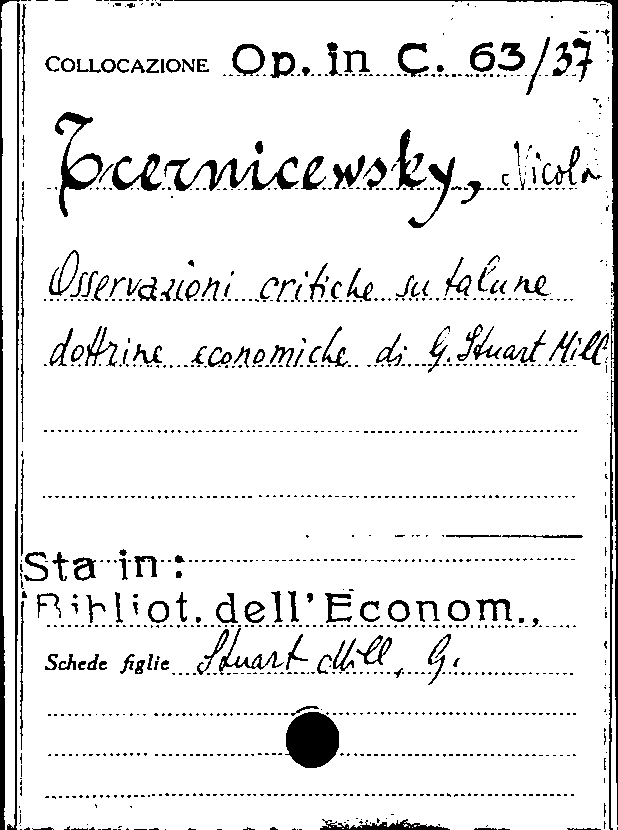 COLLOCAZIONE Op. in C. 63/37
Tcernicewsky, Nicola
Osservazioni critiche su talune
dottrine economiche di G. Stuart Mill
Sta in:
Bibliot. dell'Econom.,
Schede figlie Stuart Mill, G.